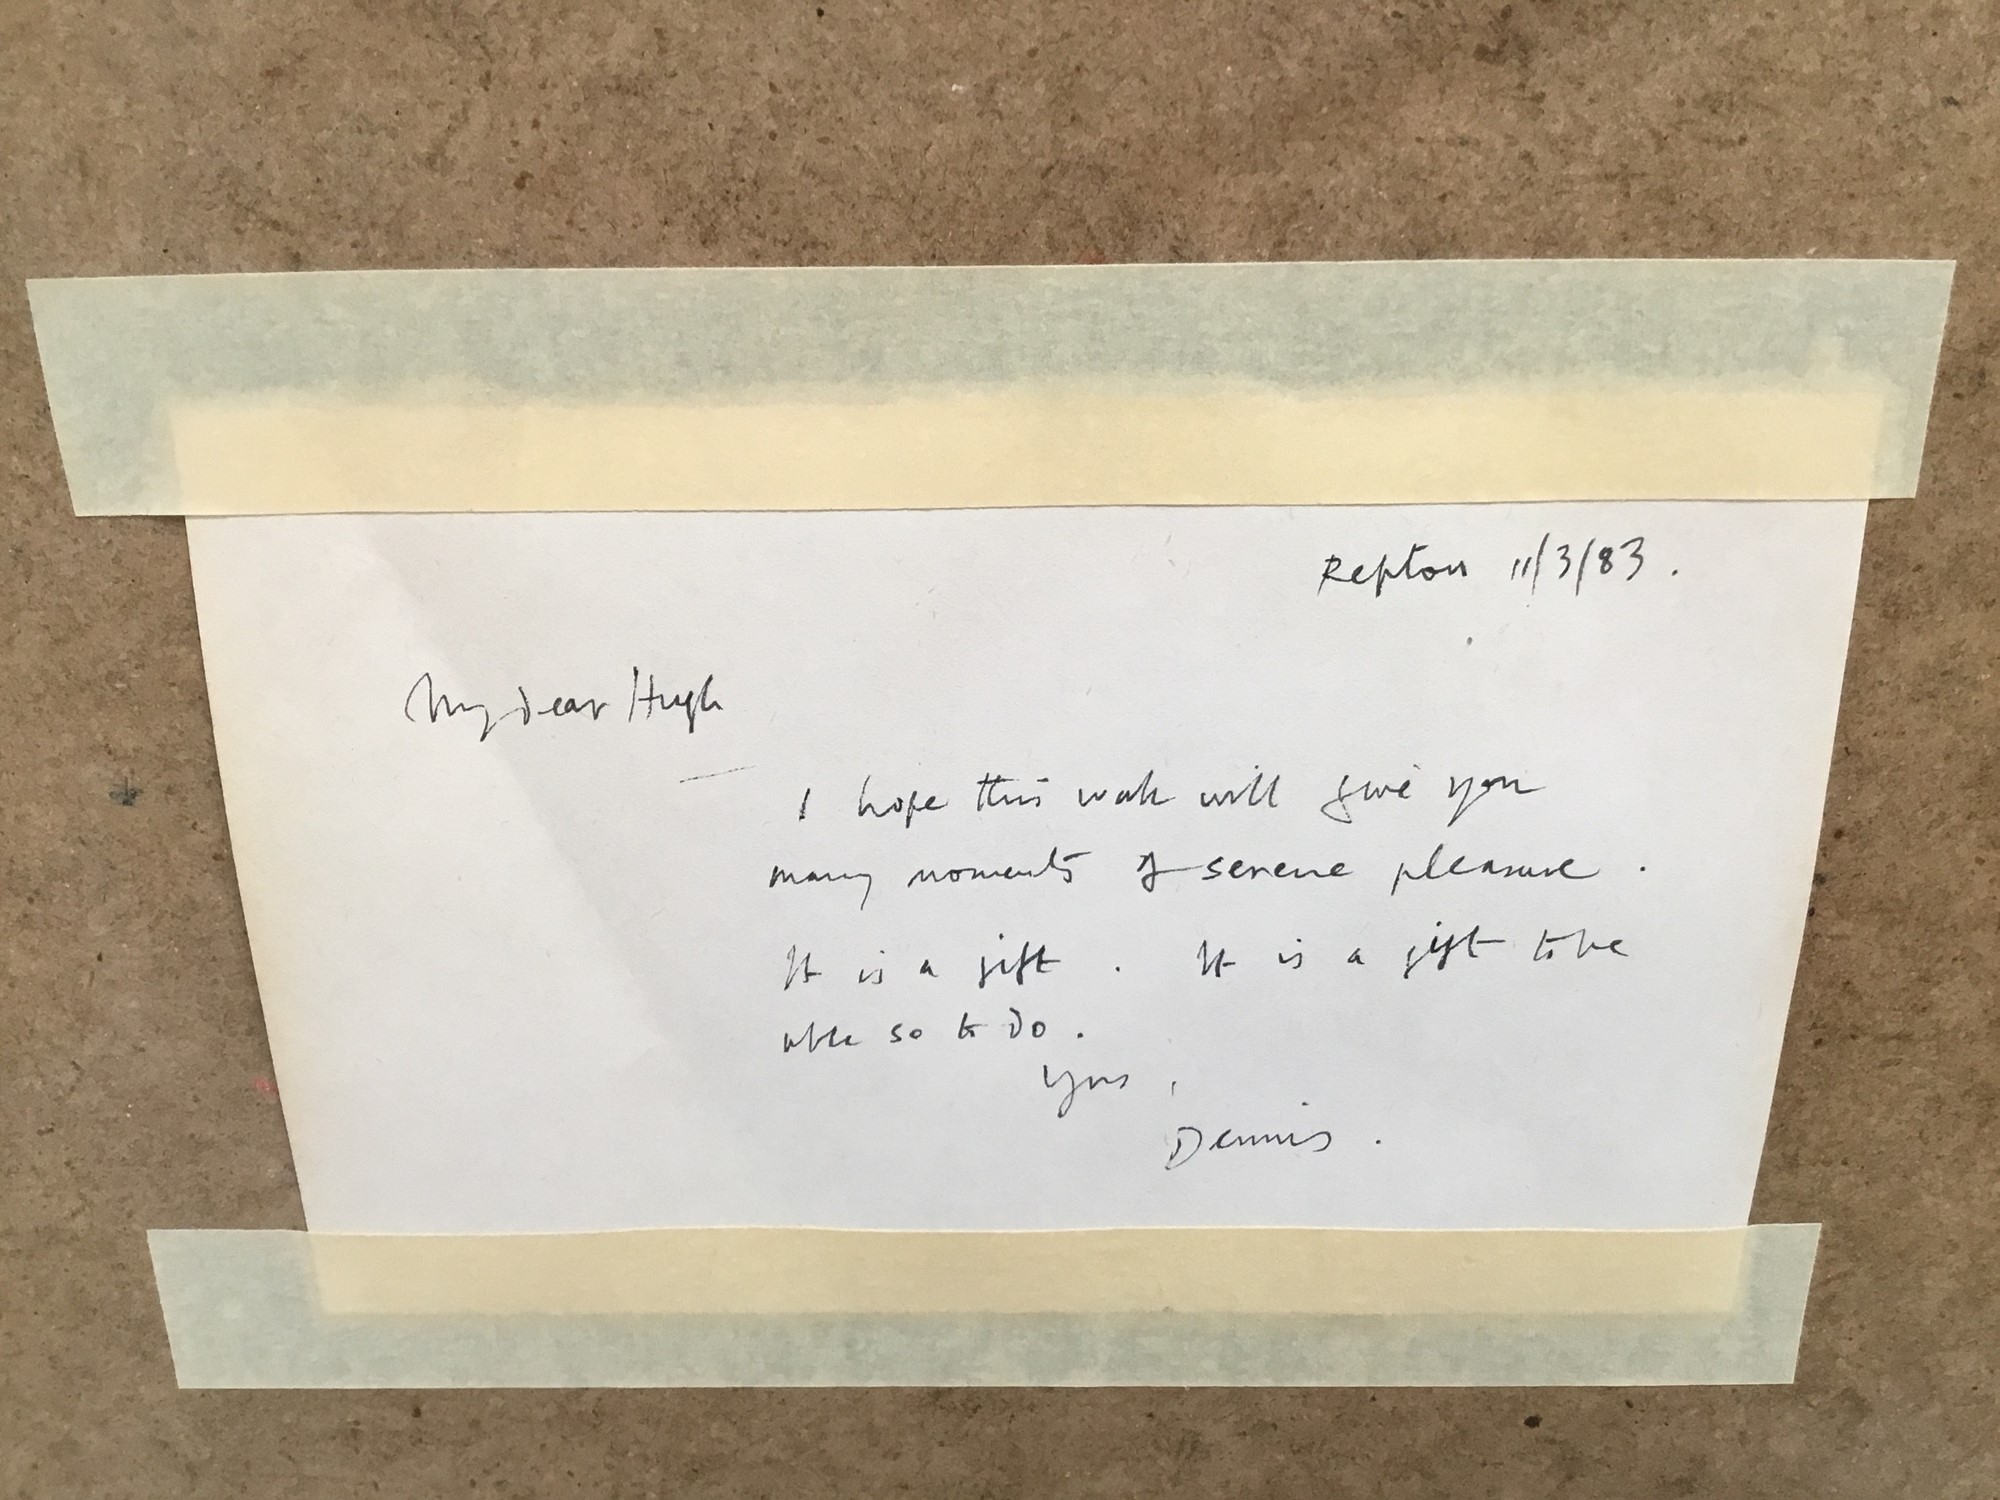 Repton 11/3/83.
My dear Hugh
I hope this work will give you
many moments of serene pleasure.
It is a gift. It is a gift to be
able so to do.
Yours,
Dennis.